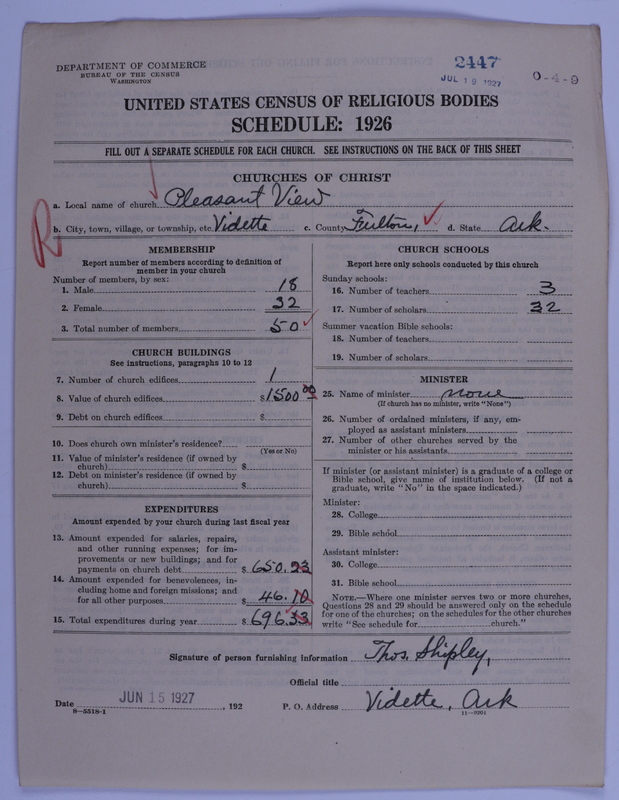 DEPARTMENT OF COMMERCE
BUREAU OF THE CENSUS
WASHINGTON
2447
JUL 19 1927
0-4-9
UNITED STATES CENSUS OF RELIGIOUS BODIES
SCHEDULE: 1926
FILL OUT A SEPARATE SCHEDULE FOR EACH CHURCH. SEE INSTRUCTIONS ON THE BACK OF THIS SHEET
CHURCHES OF CHRIST
a. Local name of church Pleasant View
R
b. City, town, village, or township, etc. Vidette c. County Fulton, d. State Ark.
MEMBERSHIP
Report number of members according to definition of
member in your church
Number of members, by sex:
1. Male 18
2. Female 32
3. Total number of members 50
CHURCH BUILDINGS
See instructions, paragraphs 10 to 12
7. Number of church edifices 1
8. Value of church edifices $1500 00
9. Debt on church edifices $
10. Does church own minister's residence?
(Yes or No)
11. Value of minister's residence (if owned by
church) $
12. Debt on minister's residence (if owned by
church) $
EXPENDITURES
Amount expended by your church during last fiscal year
13. Amount expended for salaries, repairs,
and other running expenses; for im-
provements or new buildings; and for
payments on church debt $650.23
14. Amount expended for benevolences, in-
cluding home and foreign missions; and
for all other purposes $46.10
15. Total expenditures during year $696.33
CHURCH SCHOOLS
Report here only schools conducted by this church
Sunday schools:
16. Number of teachers 3
17. Number of scholars 32
Summer vacation Bible schools:
18. Number of teachers
19. Number of scholars
MINISTER
25. Name of minister none
(If church has no minister, write "None")
26. Number of ordained ministers, if any, em-
ployed as assistant ministers
27. Number of other churches served by the
minister or his assistants
If minister (or assistant minister) is a graduate of a college or
Bible school, give name of institution below. (If not a
graduate, write "No" in the space indicated.)
Minister:
28. College
29. Bible school
Assistant minister:
30. College
31. Bible school
NOTE.—Where one minister serves two or more churches,
Questions 28 and 29 should be answered only on the schedule
for one of the churches; on the schedules for the other churches
write "See schedule for church."
Signature of person furnishing information Thos. Shipley,
Official title
Date JUN 15 1927, 192 P. O. Address Vidette, Ark
8—5518-1